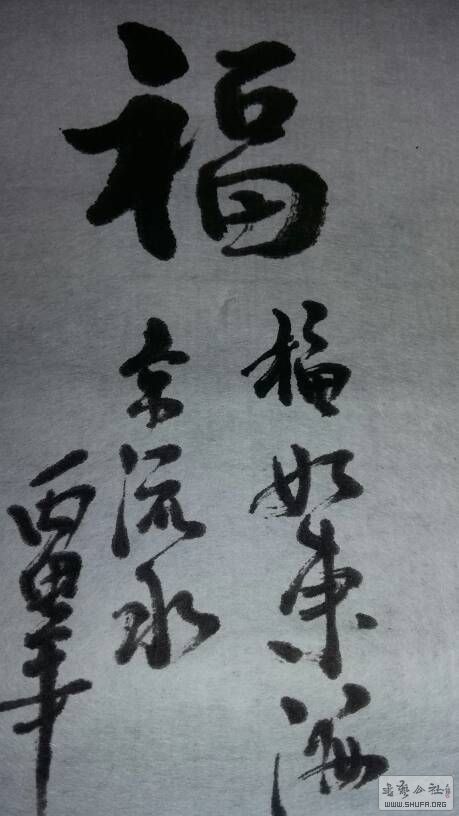 福
福如東海
流水
丙申年
书艺公社
WWW.SHUFA.ORG